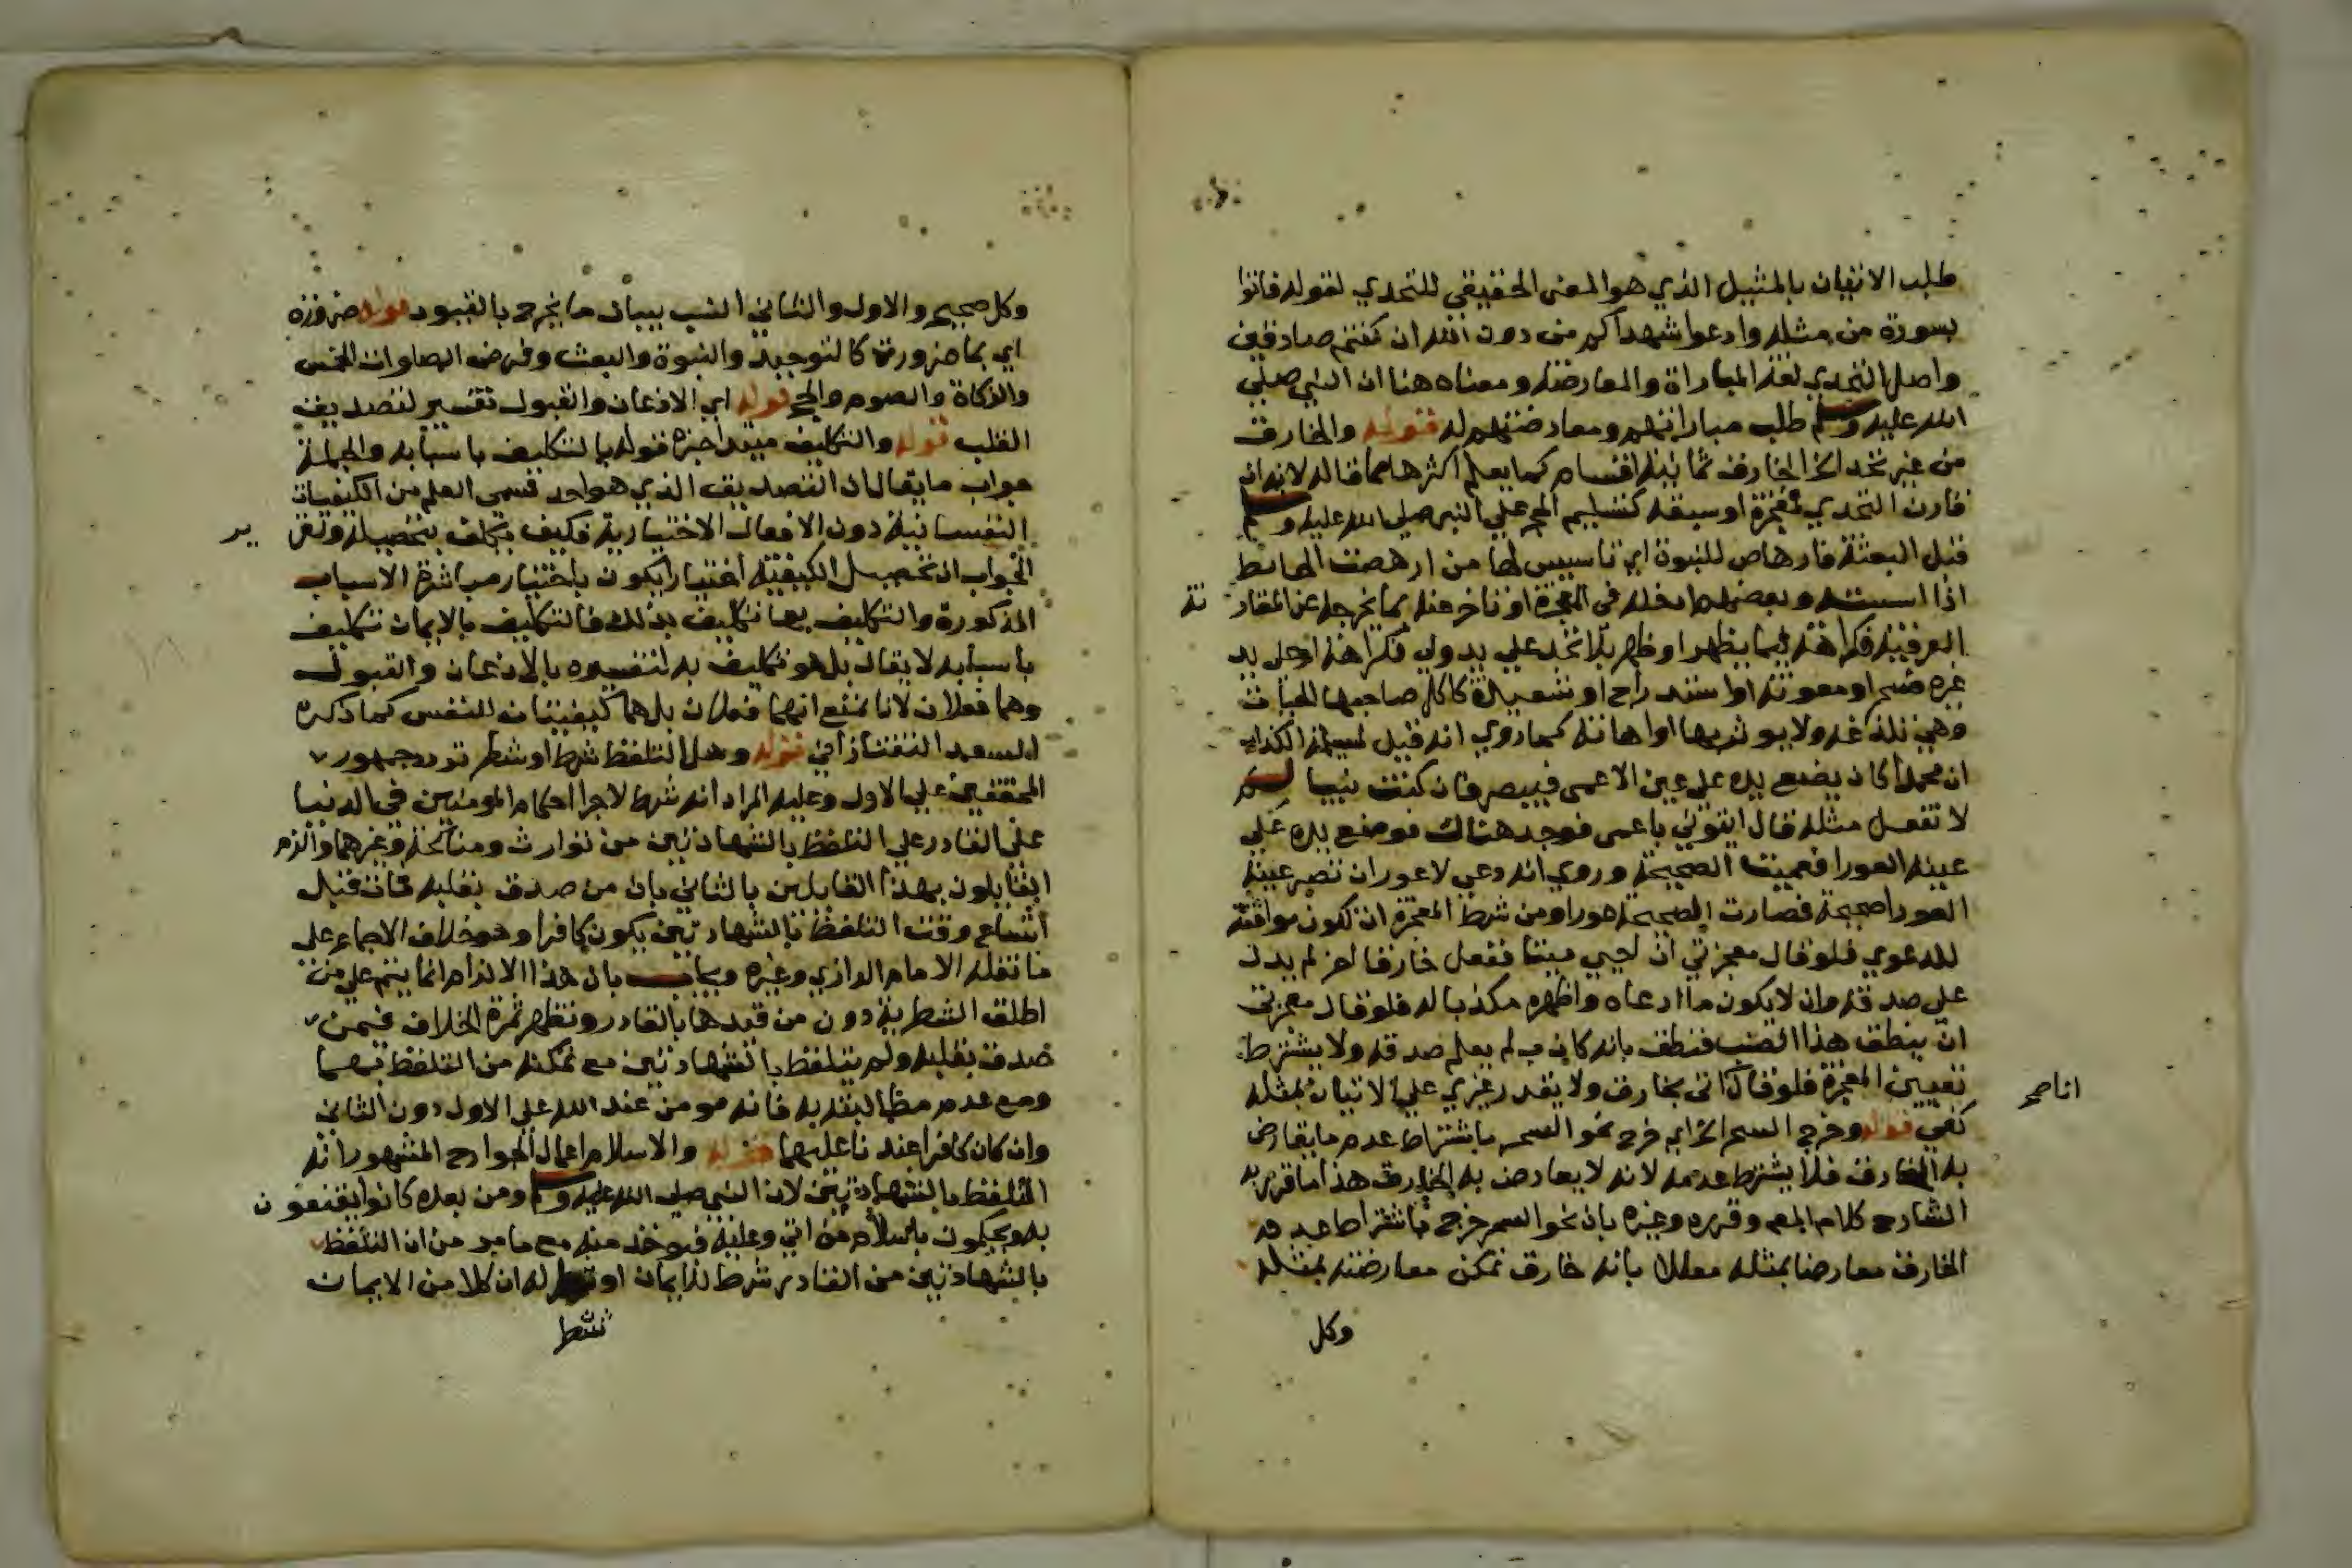 طلب الاتيان بالمثيل الذي هو المعنى الحقيقي للتحدي لقوله فاتوا
بسورة من مثله وادعوا شهداكم من دون الله ان كنتم صادقين
واصل التحدي لغة المباراة والمعارضة ومعناه هنا ان النبي صلي
الله عليه وسلم طلب مباراتهم ومعارضتهم له قوله والخارق
من غير تحد الخ الخارق ثمانية اقسام كما يعلم اكثرها مما قاله لانه ان
قارن التحدي فمعجزة او سبقه كتسليم الحجر علي النبي صلي الله عليه وسلم
قبل البعثة فارهاص للنبوة اي تاسيس لها من ارهصت الحائط
اذا اسسته وبعضهم ادخله في المعجزة او تاخر عنه بما يخرجه عن المقار نة
العرفية فكرامة فيما يظهر او ظهر بلا تحد علي يد ولي فكرامة او علي يد
غيره فسحر او معونة او استدراج او شعبذة كاكل صاحبها الحيات
وهي تلدغه ولا يتاثر بها او اهانة كما روي انه قيل لمسيلمة الكذاب
ان محمدا كان يضع يده علي عين الاعمي فيبصر فان كنت نبيا لم
لا تفعل مثله قال ايتوني باعمي فوجد هناك فوضع يده علي
عينه العورا فعميت الصحيحة وروي انه دعي لاعور ان تصير عينه
العورا صحيحة فصارت الصحيحة عورا ومن شرط المعجزة ان تكون موافقة
للدعوي فلو قال معجزتي ان احيي ميتا ففعل خارقا اخر لم يدل
علي صدقه وان لا يكون ما ادعاه واظهره مكذبا له فلو قال معجزتي
ان ينطق هذا الضب فنطق بانه كاذب لم يعلم صدقه ولا يشترط
تعيين المعجزة فلو قال اتي بخارق ولا يقدر غيري علي الاتيان بمثله
انا صح
كفي قوله وخرج السحر الخ اي خرج نحو السحر باشتراط عدم ما يعارض
به الخارق فلا يشترط عدمه لانه لا يعارض به الخارق هذا ما قرر به
الشارح كلام المص وقرره وغيره بان نحو السحر خرج باشتراط عدم
الخارق معارضا بمثله معللا بانه خارق تمكن معارضته بمثله
وكل
وكل صحيح والاول والثاني انسب ببيان ما يخرج بالقيود قوله ضرورة
اي بما ضرورته كالتوحيد والنبوة والبعث وفرض الصلوات الخمس
والزكاة والصوم والحج قوله اي الاذعان والقبول تفسير لتصديق
القلب قوله والتكليف مبتدا خبره قوله بالتكليف باسبابه والجملة
جواب ما يقال ان التصديق الذي هو احد قسمي العلم من الكيفيات
النفسانية دون الافعال الاختيارية فكيف يكلف بتحصيله وتقر ير
الجواب ان تحصيل الكيفية اختيارا يكون باختيار مباشرة الاسباب
المذكورة والتكليف بها تكليف بذلك فالتكليف بالايمان تكليف
باسبابه لا يقال بل هو تكليف به لتفسيره بالاذعان والقبول
وهما فعلان لانا نمنع انهما فعلان بل هما كيفيتان للنفس كما ذكره
السعد التفتازاني قوله وهل التلفظ شرط او شطر تردد جمهور
المحققين علي الاول وعليه المراد انه شرط لاجرا احكام المومنين في الدنيا
علي القادر علي التلفظ بالشهادتين من توارث ومناكحة وغيرهما والزم
القايلون بهذا القايلين بالثاني بان من صدق بقلبه فمات قبل
اتساع وقت التلفظ بالشهادتين يكون كافرا وهو خلاف الاجماع علي
ما نقله الامام الرازي وغيره ويجاب بان هذا الالزام انما يتم علي من
اطلق الشطرية دون من قيدها بالقادر وتظهر ثمرة الخلاف فيمن
صدق بقلبه ولم يتلفظ بالشهادتين مع تمكنه من التلفظ بهما
ومع عدم مطالبته به فانه مومن عند الله علي الاول دون الثاني
وان كان كافرا عندنا عليهما قوله والاسلام اعمال الجوارح المشهور انه
التلفظ بالشهادتين لان النبي صلي الله عليه وسلم ومن بعده كانوا يقنعون
به ويحكمون باسلام من اتي وعليه فيوخذ منه مع ما مر من ان التلفظ
بالشهادتين من القادر شرط للايمان او شطر له ان كلا من الايمان
شرط